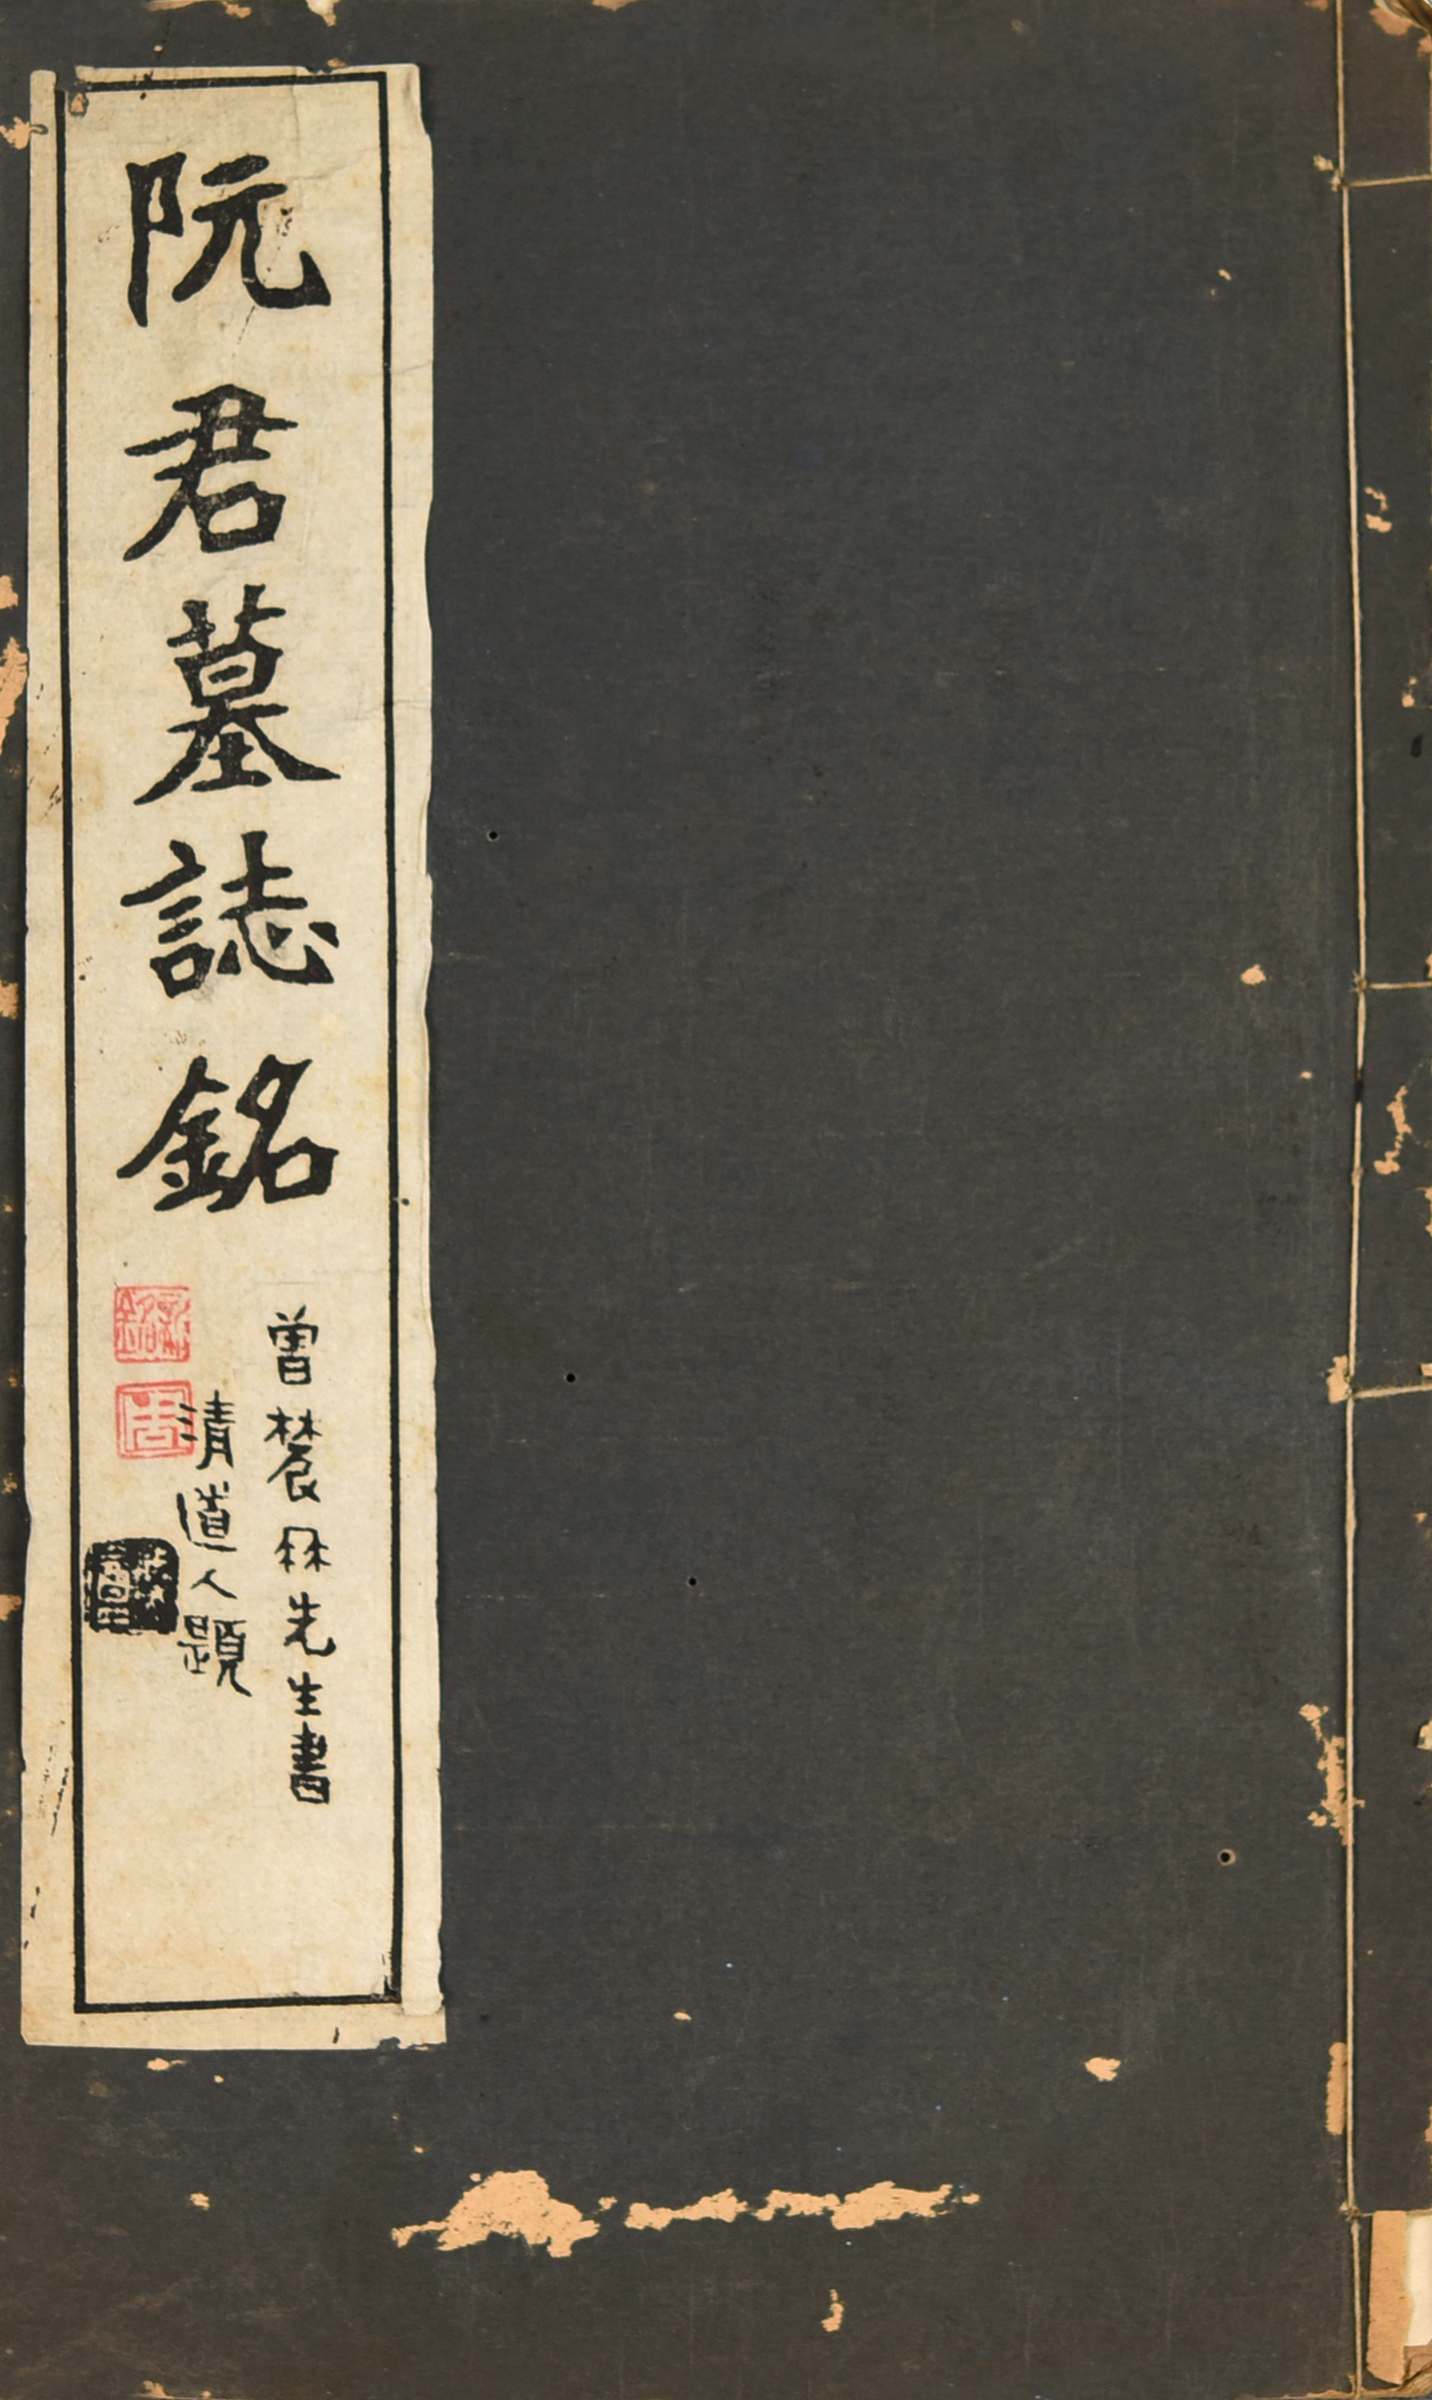 阮君墓誌銘
曾農髯先生書
清道人題